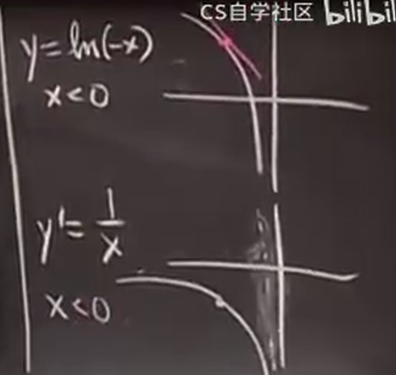 CS自学社区 bilibil
y = ln(-x)
x < 0
y' = 1/x
x < 0